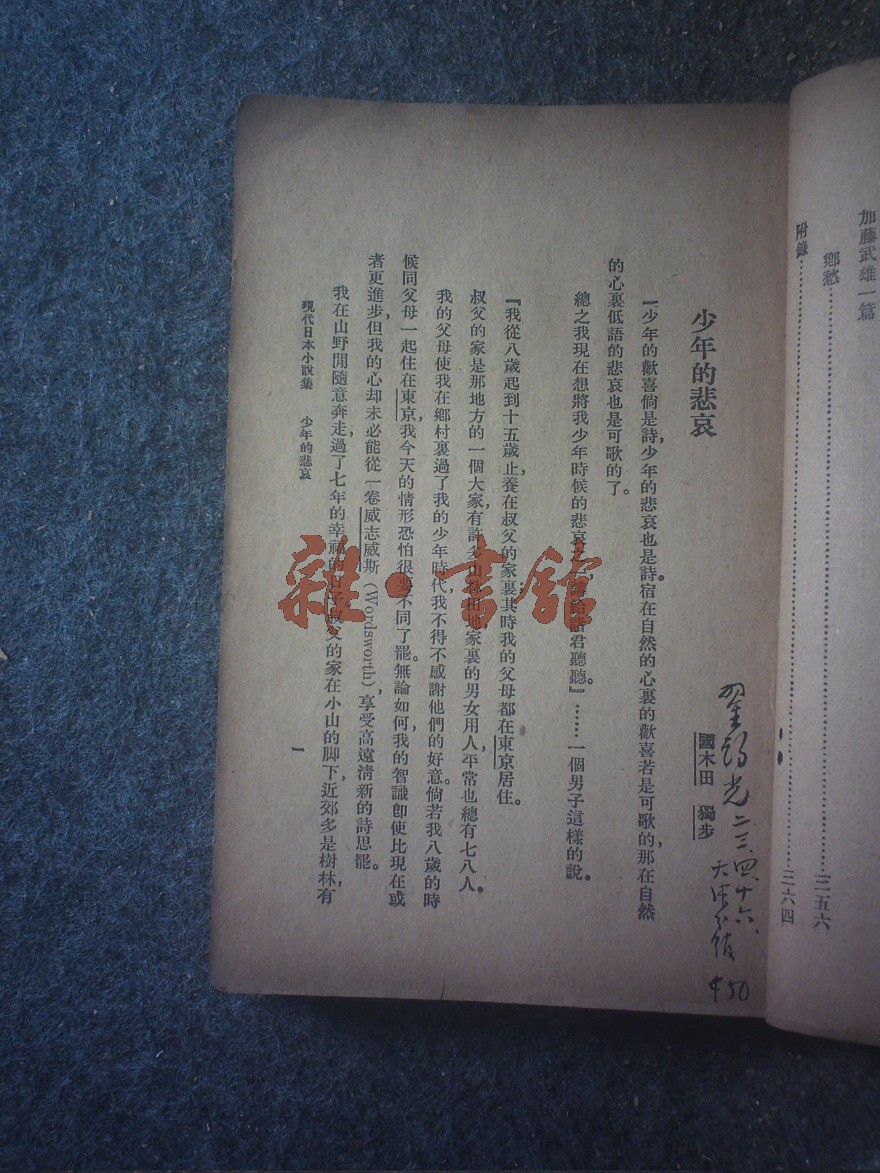 加藤武雄一篇
鄉愁……………………………………三五六
附錄……………………………………三六四
少年的悲哀
國木田 獨步
二三、四、十六、
￥50
『少年的歡喜倘是詩，少年的悲哀也是詩。宿在自然的心裏的歡喜若是可歌的，那在自然
的心裏低語的悲哀也是可歌的了。
總之我現在想將我少年時候的悲哀之，講給諸君聽聽。』……一個男子這樣的說。
『我從八歲起到十五歲止，養在叔父的家裏；其時我的父母都在東京居住。
叔父的家是那地方的一個大家，有許多山林田地，家裏的男女用人，平常也總有七八人。
我的父母使我在鄉村裏過了我的少年時代，我不得不感謝他們的好意。倘若我八歲的時
候同父母一起住在東京，我今天的情形恐怕很要不同了罷。無論如何，我的智識卽使比現在或
者更進步，但我的心却未必能從一卷威志威斯（Wordsworth），享受高遠清新的詩思罷。
我在山野間隨意奔走，過了七年的幸福的日子。叔父的家在小山的脚下，近郊多是樹林，有
現代日本小說集 少年的悲哀
一
雜·書館